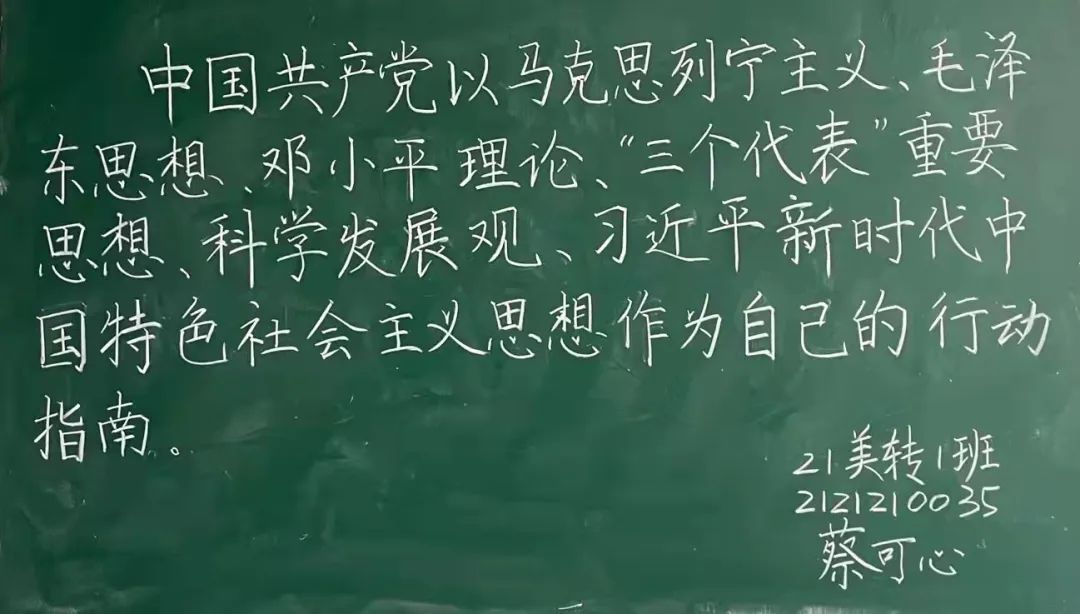 中国共产党以马克思列宁主义、毛泽
东思想、邓小平理论、“三个代表”重要
思想、科学发展观、习近平新时代中
国特色社会主义思想作为自己的行动
指南。
21美转1班
2121210035
蔡可心